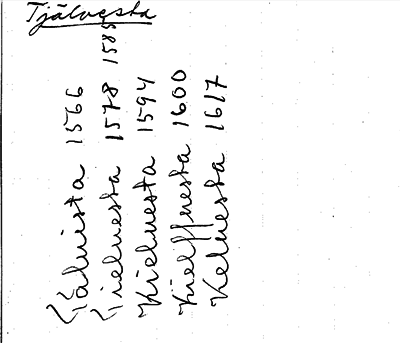 Tjälvesta
Kälvista 1566
Kielvesta 1578 1585
Kielvesta 1594
Kielffvesta 1600
Kelvesta 1617